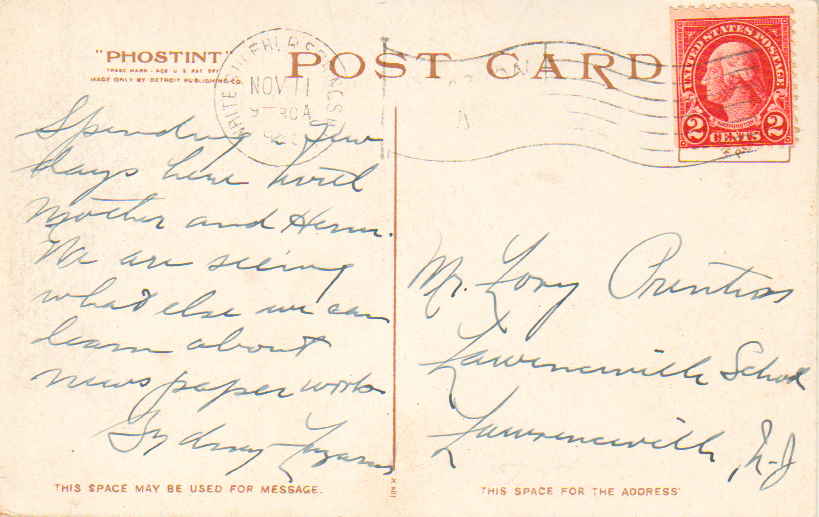 "PHOSTINT"
POST CARD
TRADE MARK - REG U S PAT OFF
MADE ONLY BY DETROIT PUBLISHING CO.
WHITE SULPHUR SPRINGS
NOV 11
UNITED STATES POSTAGE
2 CENTS 2
Spending a few
days here with
Mother and Herm.
We are seeing
what else we can
learn about
newspaper work
Sydney Lazarus
Mr. Lory Prentiss
Lawrenceville School
Lawrenceville, N-J
THIS SPACE MAY BE USED FOR MESSAGE.
THIS SPACE FOR THE ADDRESS